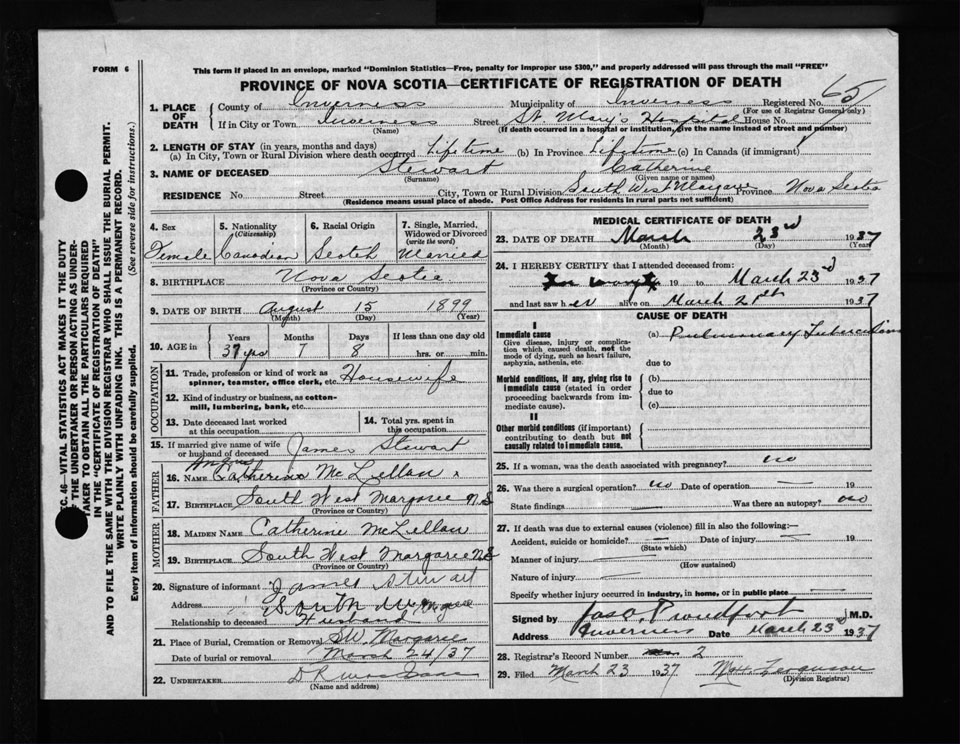 FORM 6
This form if placed in an envelope, marked "Dominion Statistics—Free, penalty for improper use $300," and properly addressed will pass through the mail "FREE"
PROVINCE OF NOVA SCOTIA—CERTIFICATE OF REGISTRATION OF DEATH
1. PLACE OF DEATH County of Inverness Municipality of Inverness Registered No. 65
(For use of Registrar General only)
If in City or Town Inverness Street St. Mary's Hospital House No.
(Name) (If death occurred in a hospital or institution, give the name instead of street and number)
2. LENGTH OF STAY (in years, months and days)
(a) In City, Town or Rural Division where death occurred Lifetime (b) In Province Lifetime (c) In Canada (if immigrant)
3. NAME OF DECEASED Stewart Catherine
(Surname) (Given name or names)
RESIDENCE No Street City, Town or Rural Division South West Margaree Province Nova Scotia
(Residence means usual place of abode. Post Office Address for residents in rural parts not sufficient)
SEC. 46—VITAL STATISTICS ACT MAKES IT THE DUTY
OF THE UNDERTAKER OR PERSON ACTING AS UNDER-
TAKER TO OBTAIN ALL THE PARTICULARS REQUIRED
IN THE "CERTIFICATE OF REGISTRATION OF DEATH"
AND TO FILE THE SAME WITH THE DIVISION REGISTRAR WHO SHALL ISSUE THE BURIAL PERMIT.
WRITE PLAINLY WITH UNFADING INK. THIS IS A PERMANENT RECORD.
Every item of information should be carefully supplied. (See reverse side for instructions.)
4. Sex 5. Nationality (Citizenship) 6. Racial Origin 7. Single, Married, Widowed or Divorced (write the word)
Female Canadian Scotch Married
8. BIRTHPLACE Nova Scotia
(Province or Country)
9. DATE OF BIRTH August 15 1899
(Month) (Day) (Year)
10. AGE in Years Months Days If less than one day old
37 yrs 7 8 hrs. or min.
OCCUPATION
11. Trade, profession or kind of work as spinner, teamster, office clerk, etc. Housewife
12. Kind of industry or business, as cotton-mill, lumbering, bank, etc.
13. Date deceased last worked at this occupation 14. Total yrs. spent in this occupation
15. If married give name of wife or husband of deceased James Stewart
FATHER
Angus
16. NAME Catherine McLellan
17. BIRTHPLACE South West Margaree N.S
(Province or Country)
MOTHER
18. MAIDEN NAME Catherine McLellan
19. BIRTHPLACE South West Margaree NS
(Province or Country)
20. Signature of informant James Stewart
Address South Margaree
Relationship to deceased Husband
21. Place of Burial, Cremation or Removal SW. Margaree
Date of burial or removal March 24/37
22. UNDERTAKER
(Name and address)
MEDICAL CERTIFICATE OF DEATH
23. DATE OF DEATH March 23rd 1937
(Month) (Day) (Year)
24. I HEREBY CERTIFY that I attended deceased from:
19 to March 23rd 1937
and last saw her alive on March 21st 1937
CAUSE OF DEATH
I
Immediate cause
Give disease, injury or complication which caused death, not the mode of dying, such as heart failure, asphyxia, asthenia, etc.
(a) Pulmonary Tuberculosis
due to
Morbid conditions, if any, giving rise to immediate cause (stated in order proceeding backwards from immediate cause).
(b)
due to
(c)
II
Other morbid conditions (if important) contributing to death but not causally related to immediate cause.
25. If a woman, was the death associated with pregnancy? no
26. Was there a surgical operation? no Date of operation — 19
State findings — Was there an autopsy? no
27. If death was due to external causes (violence) fill in also the following:—
Accident, suicide or homicide? — Date of injury — 19
(State which)
Manner of injury —
(How sustained)
Nature of injury —
Specify whether injury occurred in industry, in home, or in public place —
Signed by Jas. O. Proudfoot M.D.
Address Inverness Date March 23rd 1937
28. Registrar's Record Number 2
29. Filed March 23 1937 Ferguson
(Division Registrar)